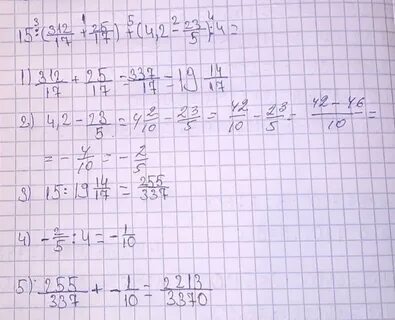 15 : (312/17 + 25/17) + (4,2 - 23/5) : 4 =
1) 312/17 + 25/17 = 337/17 = 19 14/17
2) 4,2 - 23/5 = 4 2/10 - 23/5 = 42/10 - 23/5 = 42 - 46/10 =
= - 4/10 = - 2/5
3) 15 : 19 14/17 = 255/337
4) - 2/5 : 4 = - 1/10
5) 255/337 + - 1/10 = 2213/3370